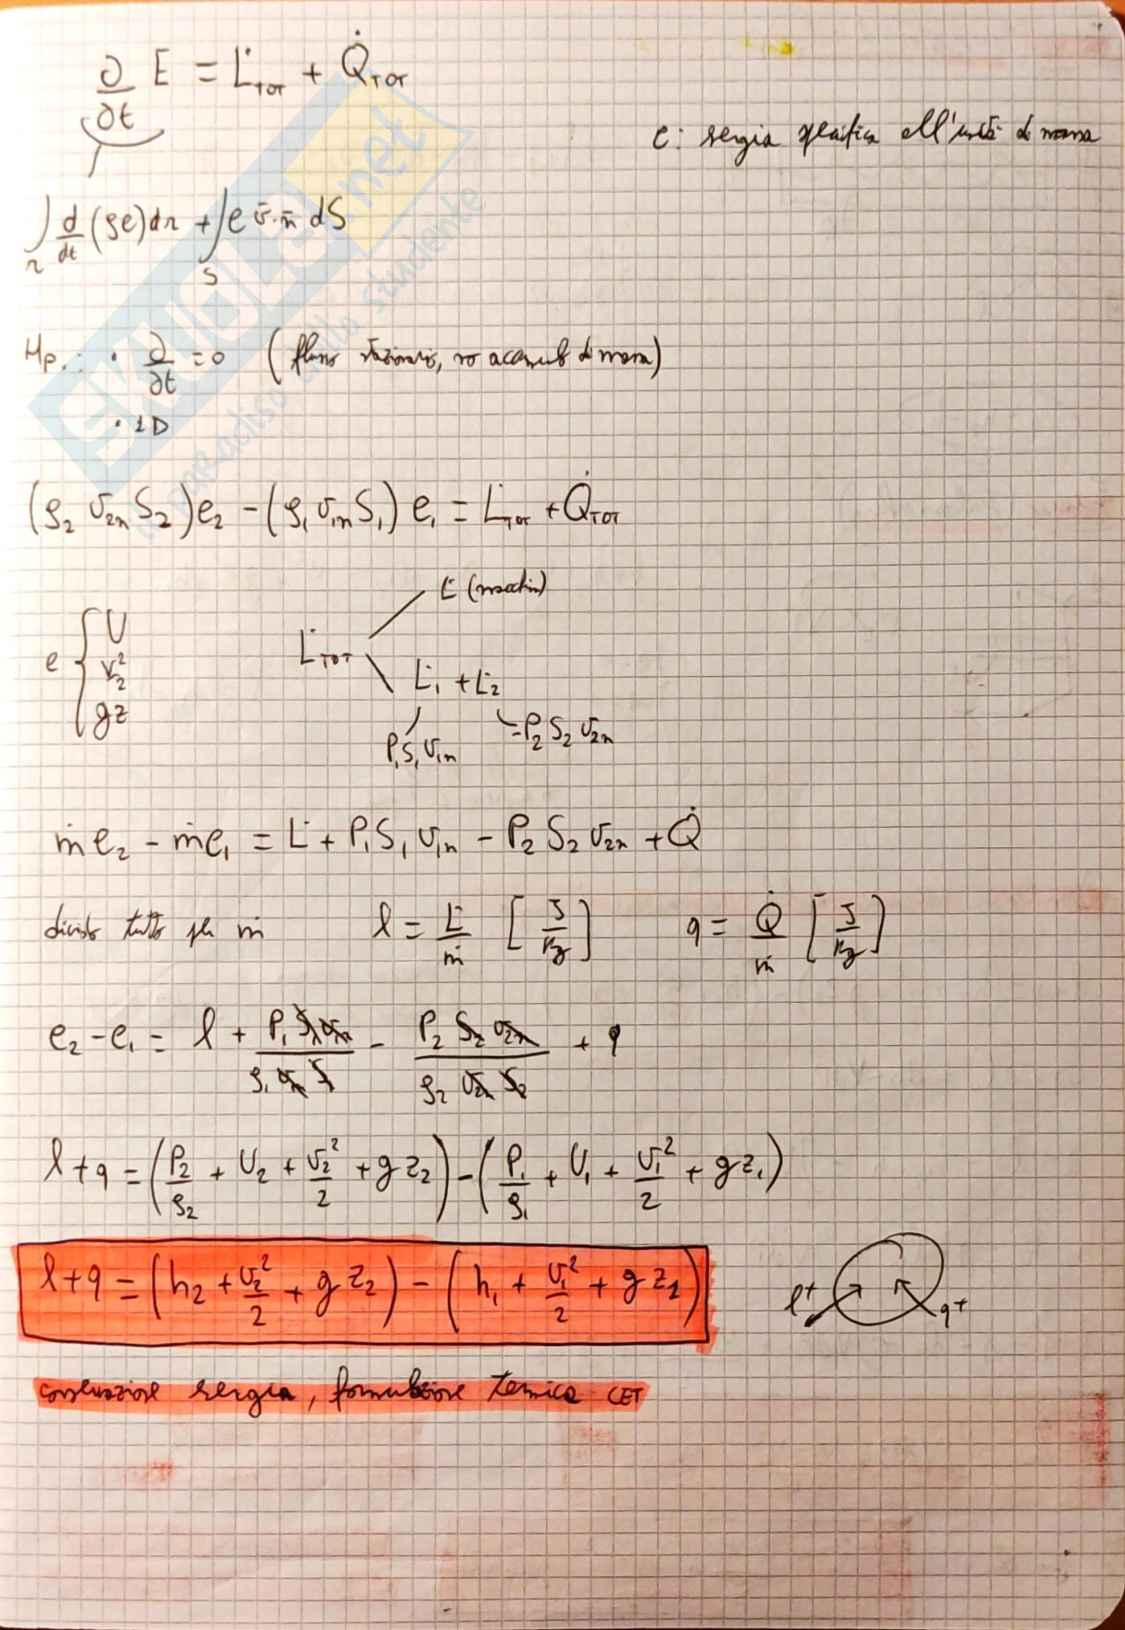 ∂/∂t E = L̇TOT + Q̇TOT
e: energia specifica all'unità di massa
∫Ω d/dt (ρe) dΩ + ∫S e v̄·n̄ dS
Hp.: · ∂/∂t = 0 (flusso stazionario, no accumulo di massa)
· 1D
(ρ2 v2n S2) e2 - (ρ1 v1n S1) e1 = L̇TOT + Q̇TOT
e { U
v²/2
gz
L̇TOT
L̇ (macchina)
L̇1 + L̇2
P1 S1 v1n
-P2 S2 v2n
ṁe2 - ṁe1 = L̇ + P1 S1 v1n - P2 S2 v2n + Q̇
divido tutto per ṁ l = L̇/ṁ [J/kg] q = Q̇/ṁ [J/kg]
e2 - e1 = l + P1 S1 v1n / ρ1 v1n S1 - P2 S2 v2n / ρ2 v2n S2 + q
l + q = (P2/ρ2 + U2 + v2²/2 + g z2) - (P1/ρ1 + U1 + v1²/2 + g z1)
l + q = (h2 + v2²/2 + g z2) - (h1 + v1²/2 + g z1)
l+ q+
conservazione energia, formulazione termica CET
SKUOLA.net
paradiso dello studente